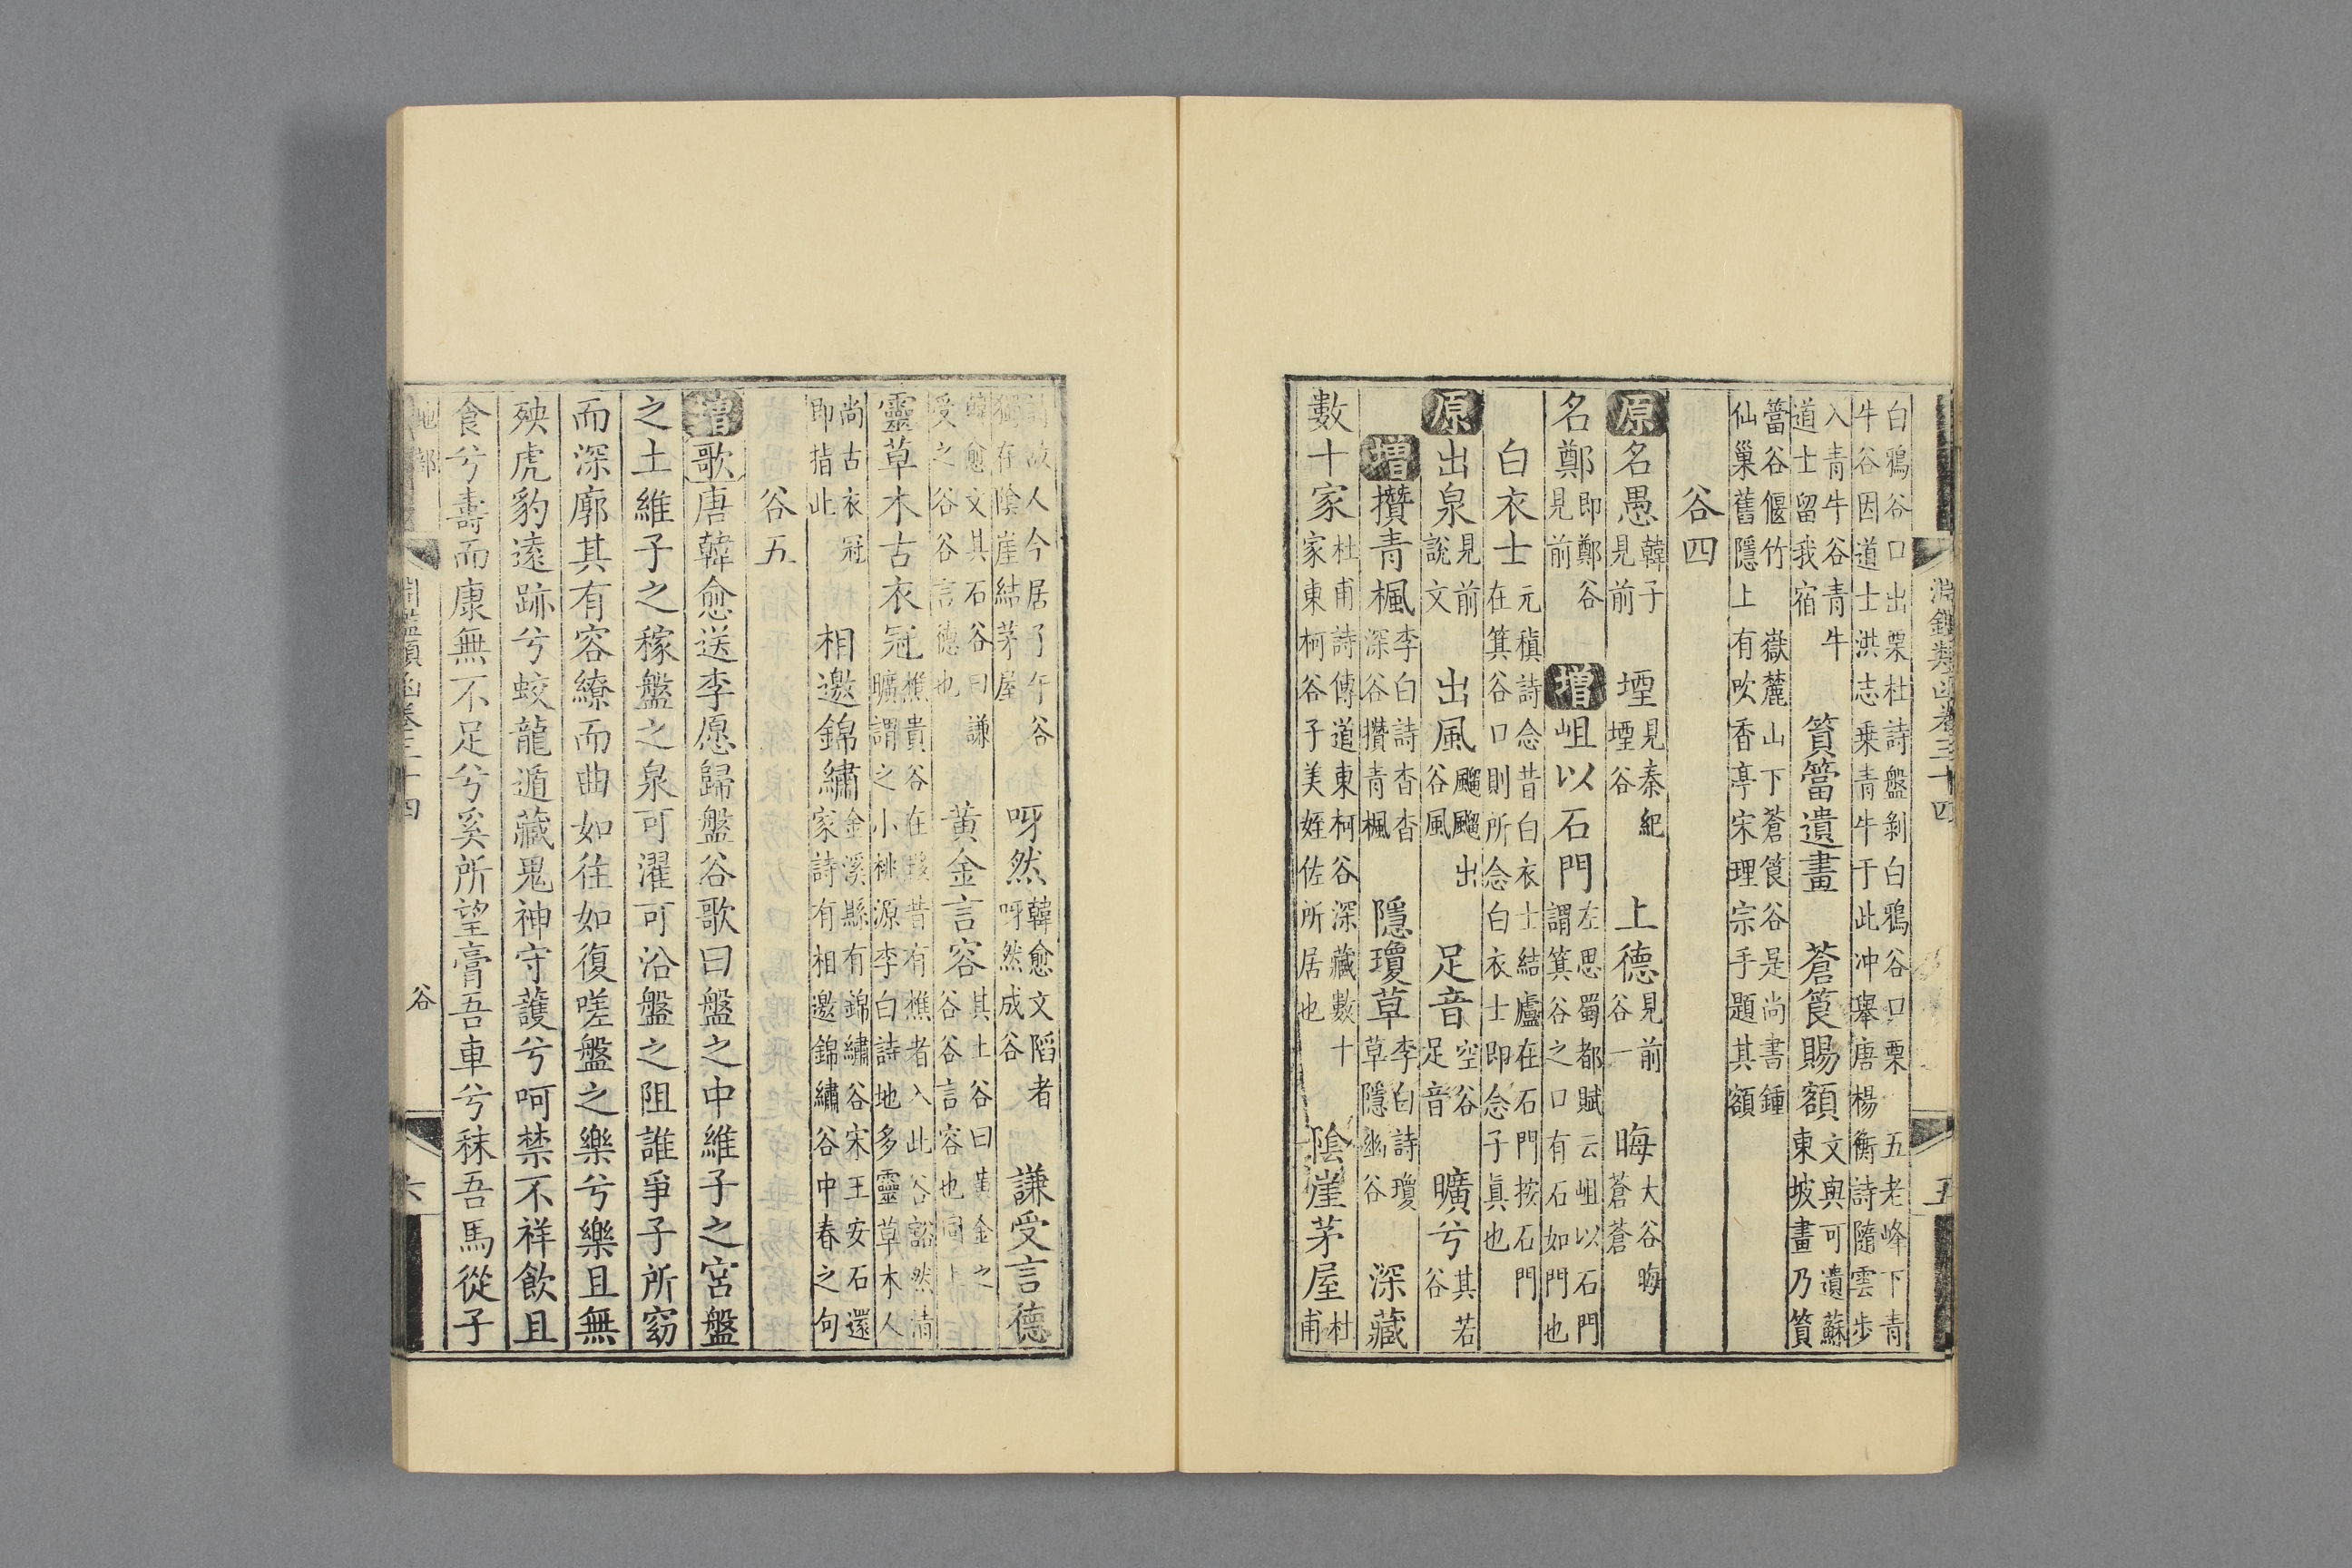 淵鑑類函卷三十四
五
白鴉谷口出栗杜詩盤剝白鴉谷口栗 五老峰下青
牛谷因道士洪志乗青牛于此冲舉唐楊衡詩隨雲步
入青牛谷青牛道士留我宿 篔簹遺畫 蒼筤賜額文與可遺蘇東坡畫乃篔
簹谷偃竹 嶽麓山下蒼筤谷是尚書鍾
仙巢舊隱上有吹香亭宋理宗手題其額
谷四
原名愚韓子見前 堙見秦紀堙谷 上德見前谷一 晦大谷晦蒼蒼
名鄭即鄭谷見前 增岨以石門左思蜀都賦云岨以石門謂箕谷之口有石如門也
白衣士元稹詩念昔白衣士結廬在石門按石門在箕谷口則所念白衣士即念子真也
原出泉見前說文 出風飀飀出谷風 足音空谷足音 曠兮其若谷
增攢青楓李白詩杳杳深谷攢青楓 隱瓊草李白詩瓊草隱幽谷 深藏
數十家杜甫詩傳道東柯谷深藏數十家東柯谷子美姪佐所居也 陰崖茅屋杜甫
詩故人今居子午谷獨在陰崖結茅屋 呀然韓愈文陷者呀然成谷 謙受言德
韓愈文其石谷曰謙受之谷谷言德也 黄金言容其土谷曰黄金之谷谷言容也同上
靈草木古衣冠樵貴谷在縣昔有樵者入此谷豁然清曠謂之小桃源李白詩地多靈草木人
尚古衣冠即指此 相邀錦繡金溪縣有錦繡谷宋王安石還家詩有相邀錦繡谷中春之句
谷五
增歌唐韓愈送李愿歸盤谷歌曰盤之中維子之宮盤
之土維子之稼盤之泉可濯可沿盤之阻誰爭子所窈
而深廓其有容繚而曲如往如復嗟盤之樂兮樂且無
殃虎豹遠跡兮蛟龍遁藏鬼神守護兮呵禁不祥飲且
食兮壽而康無不足兮奚所望膏吾車兮秣吾馬從子
地部 淵鑑類函卷三十四 谷 六